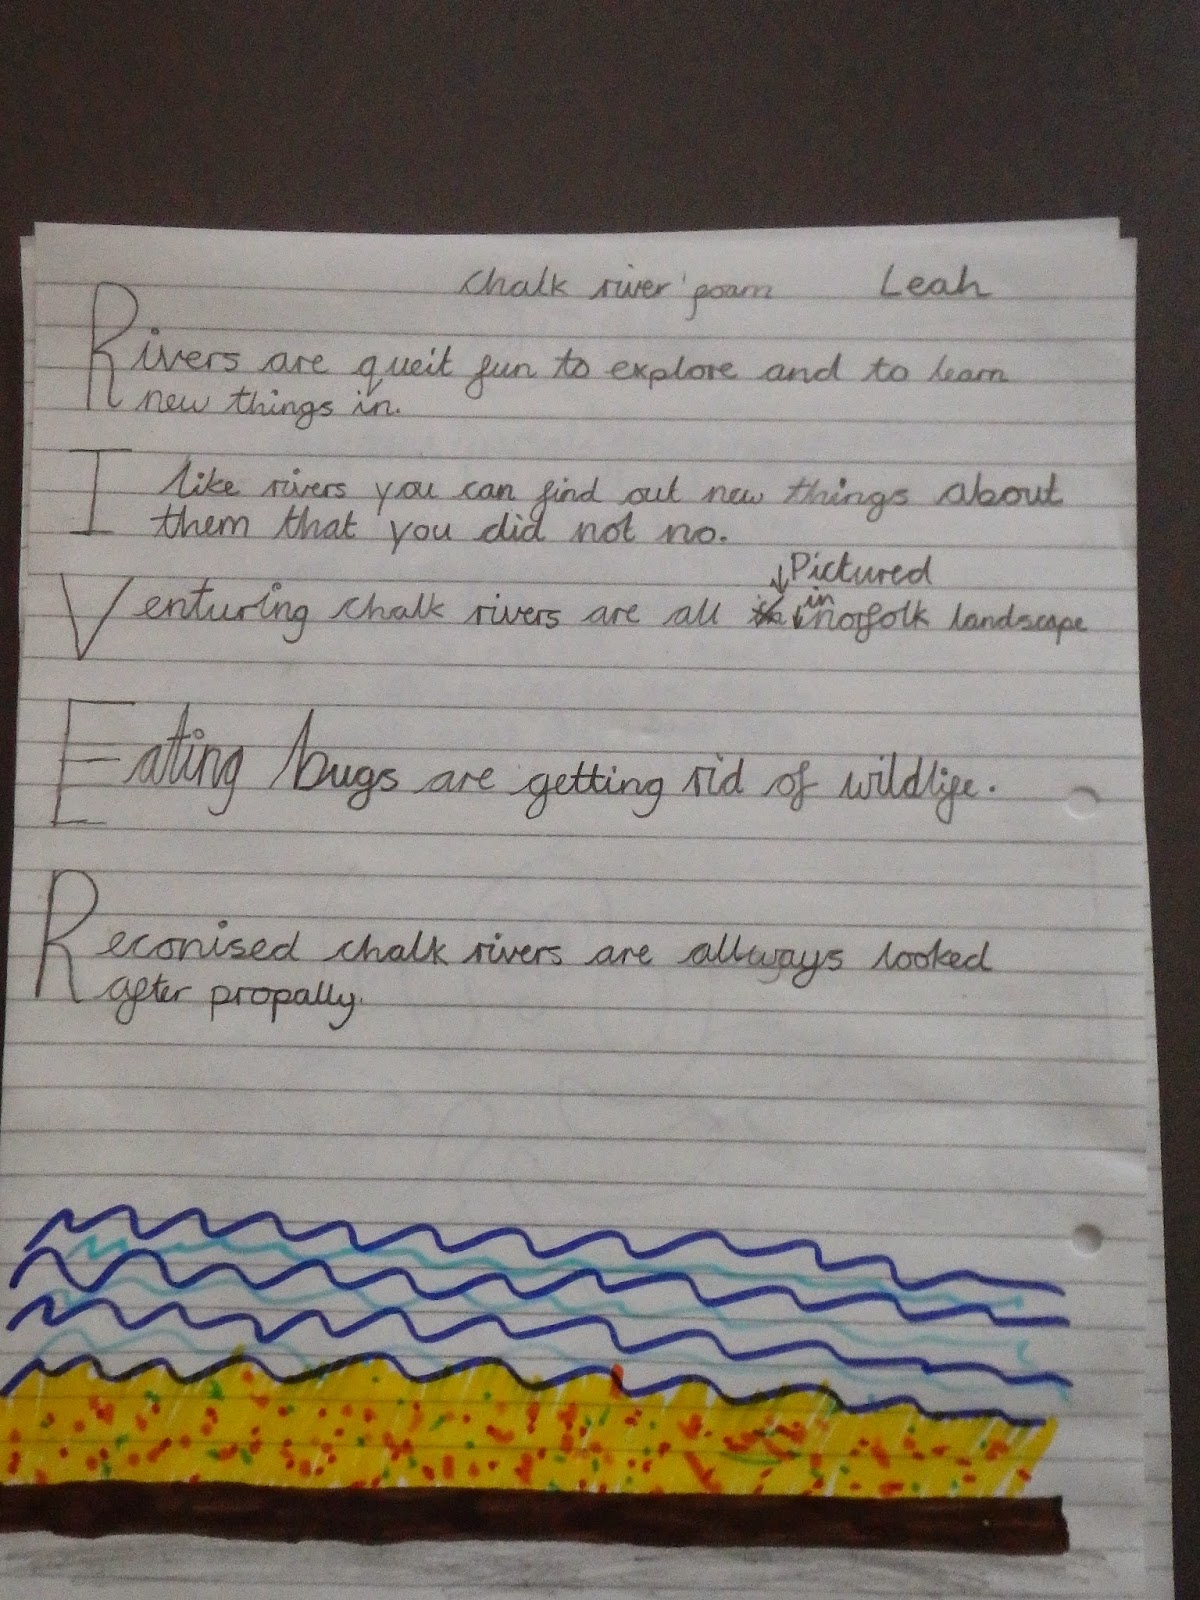 chalk river poam Leah
Rivers are queit fun to explore and to learn
new things in.
I like rivers you can find out new things about
them that you did not no.
Pictured
in
Venturing chalk rivers are all norfolk landscape
Eating bugs are getting rid of wildlife.
Reconised chalk rivers are allways looked
after propally.